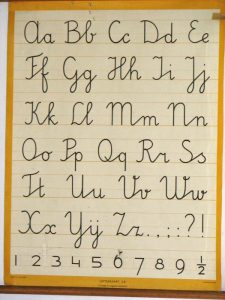 Aa Bb Cc Dd Ee
Ff Gg Hh Ii Jj
Kk Ll Mm Nn
Oo Pp Qq Rr Ss
Tt Uu Vv Ww
Xx Yÿ Zz..,:;?!
1 2 3 4 5 6 7 8 9 ½